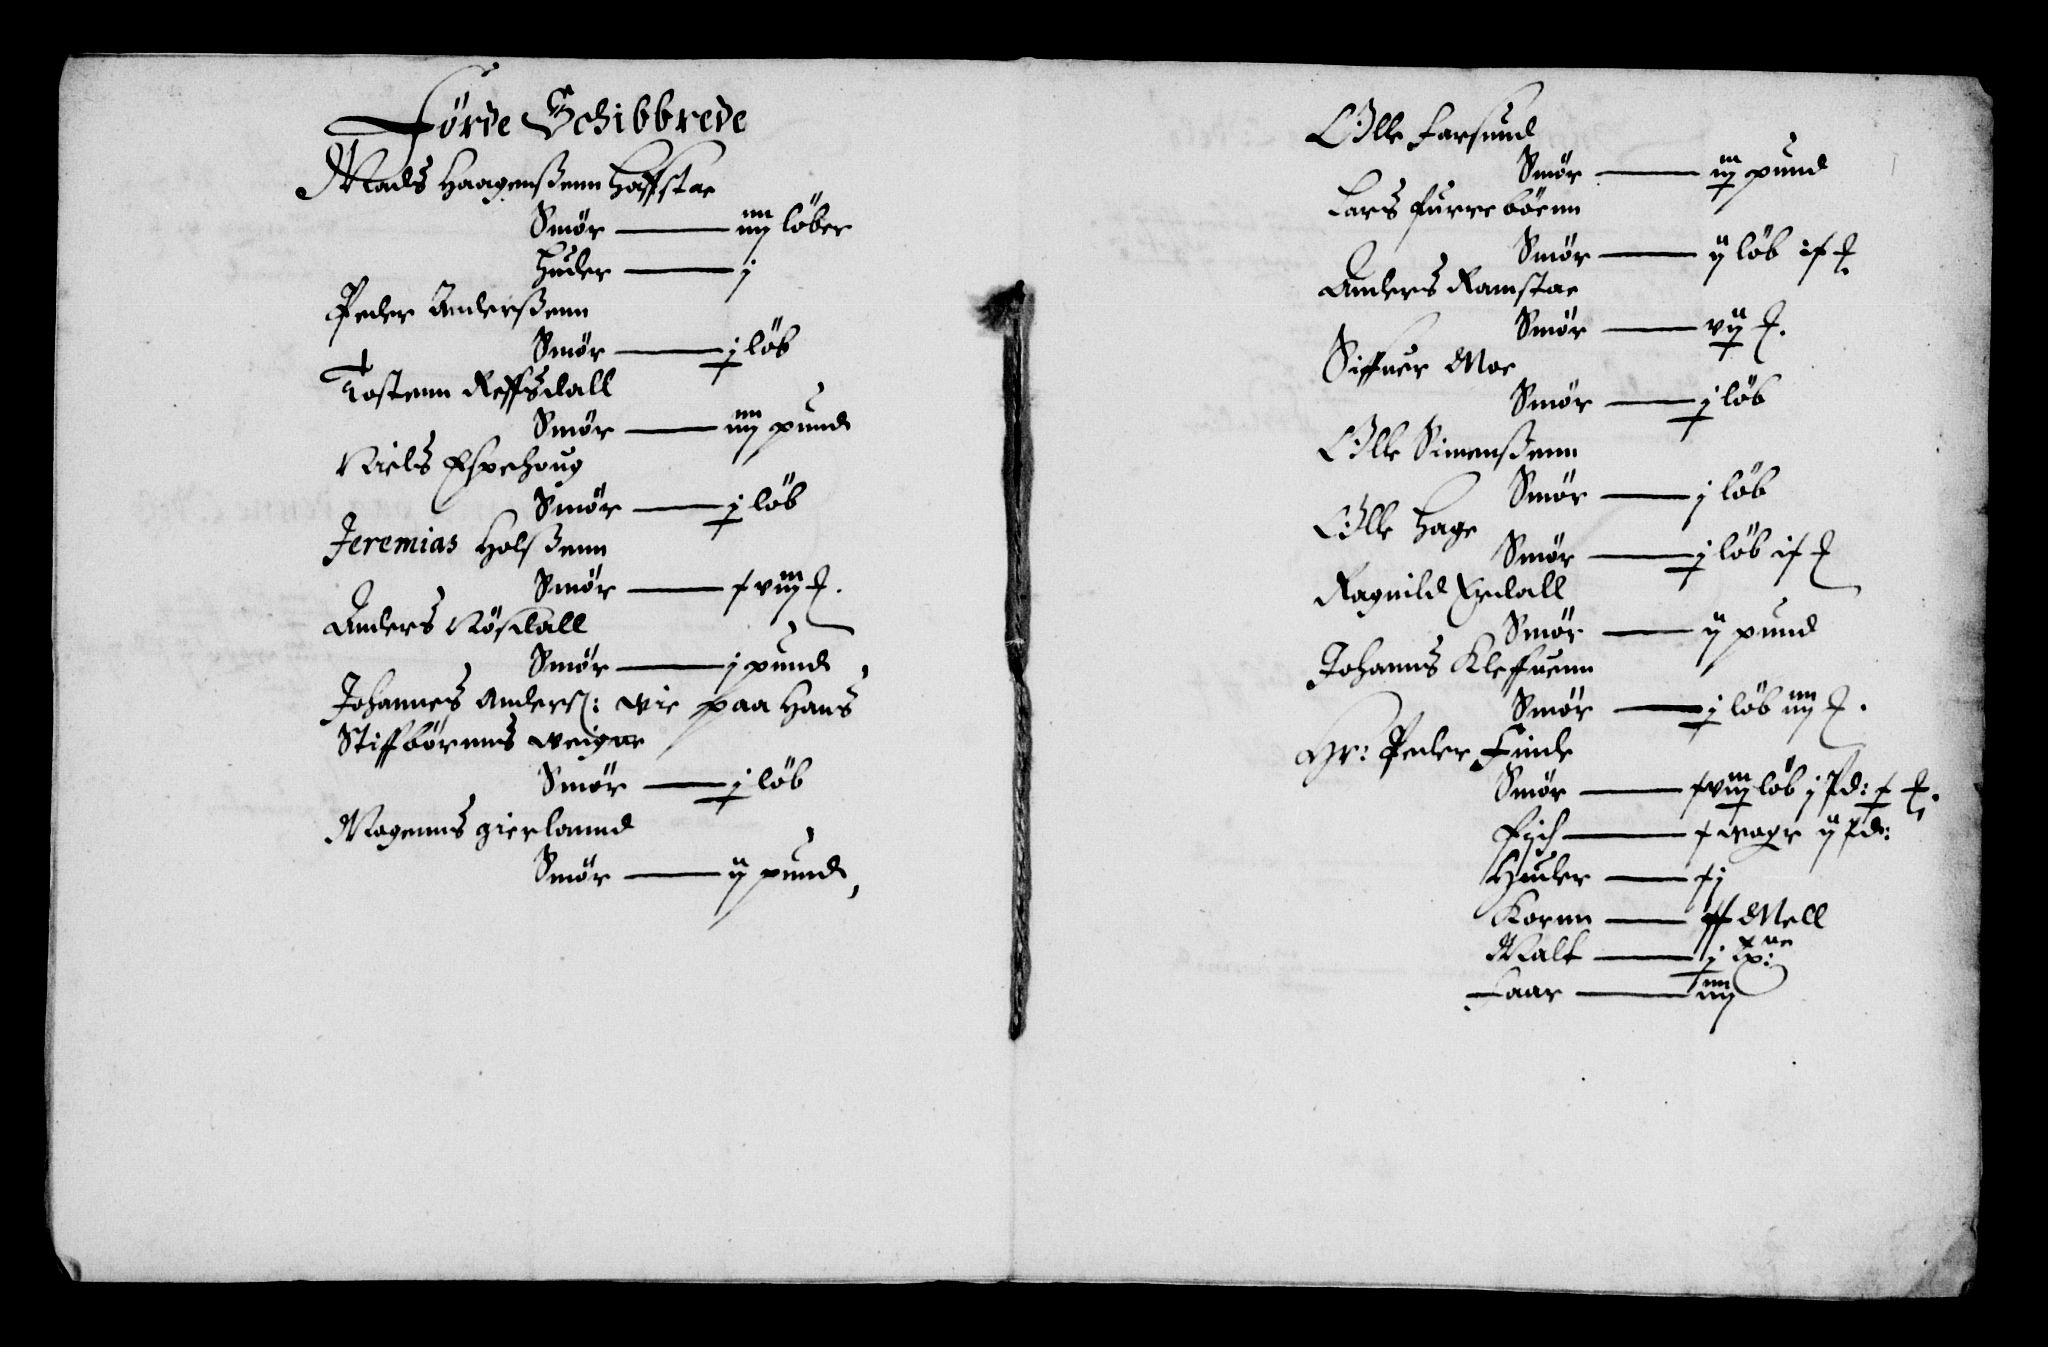 Förde Schibbrede
Mads Haagensßenn Haffstae
Smör — iiij löber
Huder — j
Peder Andersßenn
Smör — j löb
Tostenn Reffsdall
Smör — iiij pund
Niels Espehoug
Smör — j löb
Jeremias Holsßenn
Smör —
Anders Nösdall
Smör — j pund
Johannes Anders: Vie paa Hans
Stiffbörnns veigne
Smör — j löb
Mogenns gierlannd
Smör — ij pund
Olle Farsund
Smör — iij pund
Lars furreböenn
Smör — ij löb
Anders Ramstae
Smör — vij
Siffuer Moe
Smör — j löb
Olle Simensßenn
Smör — j löb
Olle Hage
Smör — j löb
Ragnild Erdall
Smör — ij pund
Johanns Kleffuenn
Smör — j löb iiij
Hr: Peder Finde
Smör — xviij löb j Pd:
Fisch — x voge ij Pd:
Huder — xj
Kornn — Mell
Malt — j
Faar — iiij